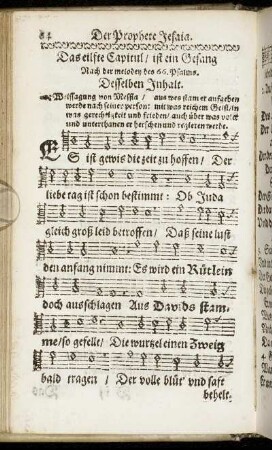 84 Der Prophete Jesaia.
Das eilfte Capitul / ist ein Gesang
Nach der melodey des 66. Psalms.
Desselben Inhalt.
Weissagung von Messia / aus wes stam er anfahen
werde nach seiner person: mit was reichem Geist / in
was gerechtigkeit und frieden / auch über was volck
und unterthanen er herschen und regieren werde.
ES ist gewis die zeit zu hoffen / Der
liebe tag ist schon bestimmt: Ob Juda
gleich groß leid betroffen / Daß seine lust
den anfang nimmt: Es wird ein Rütlein
doch ausschlagen Aus Davids stam-
me / so gefelle / Die wurtzel einen Zweig
bald tragen / Der volle blüt' und saft
behelt.